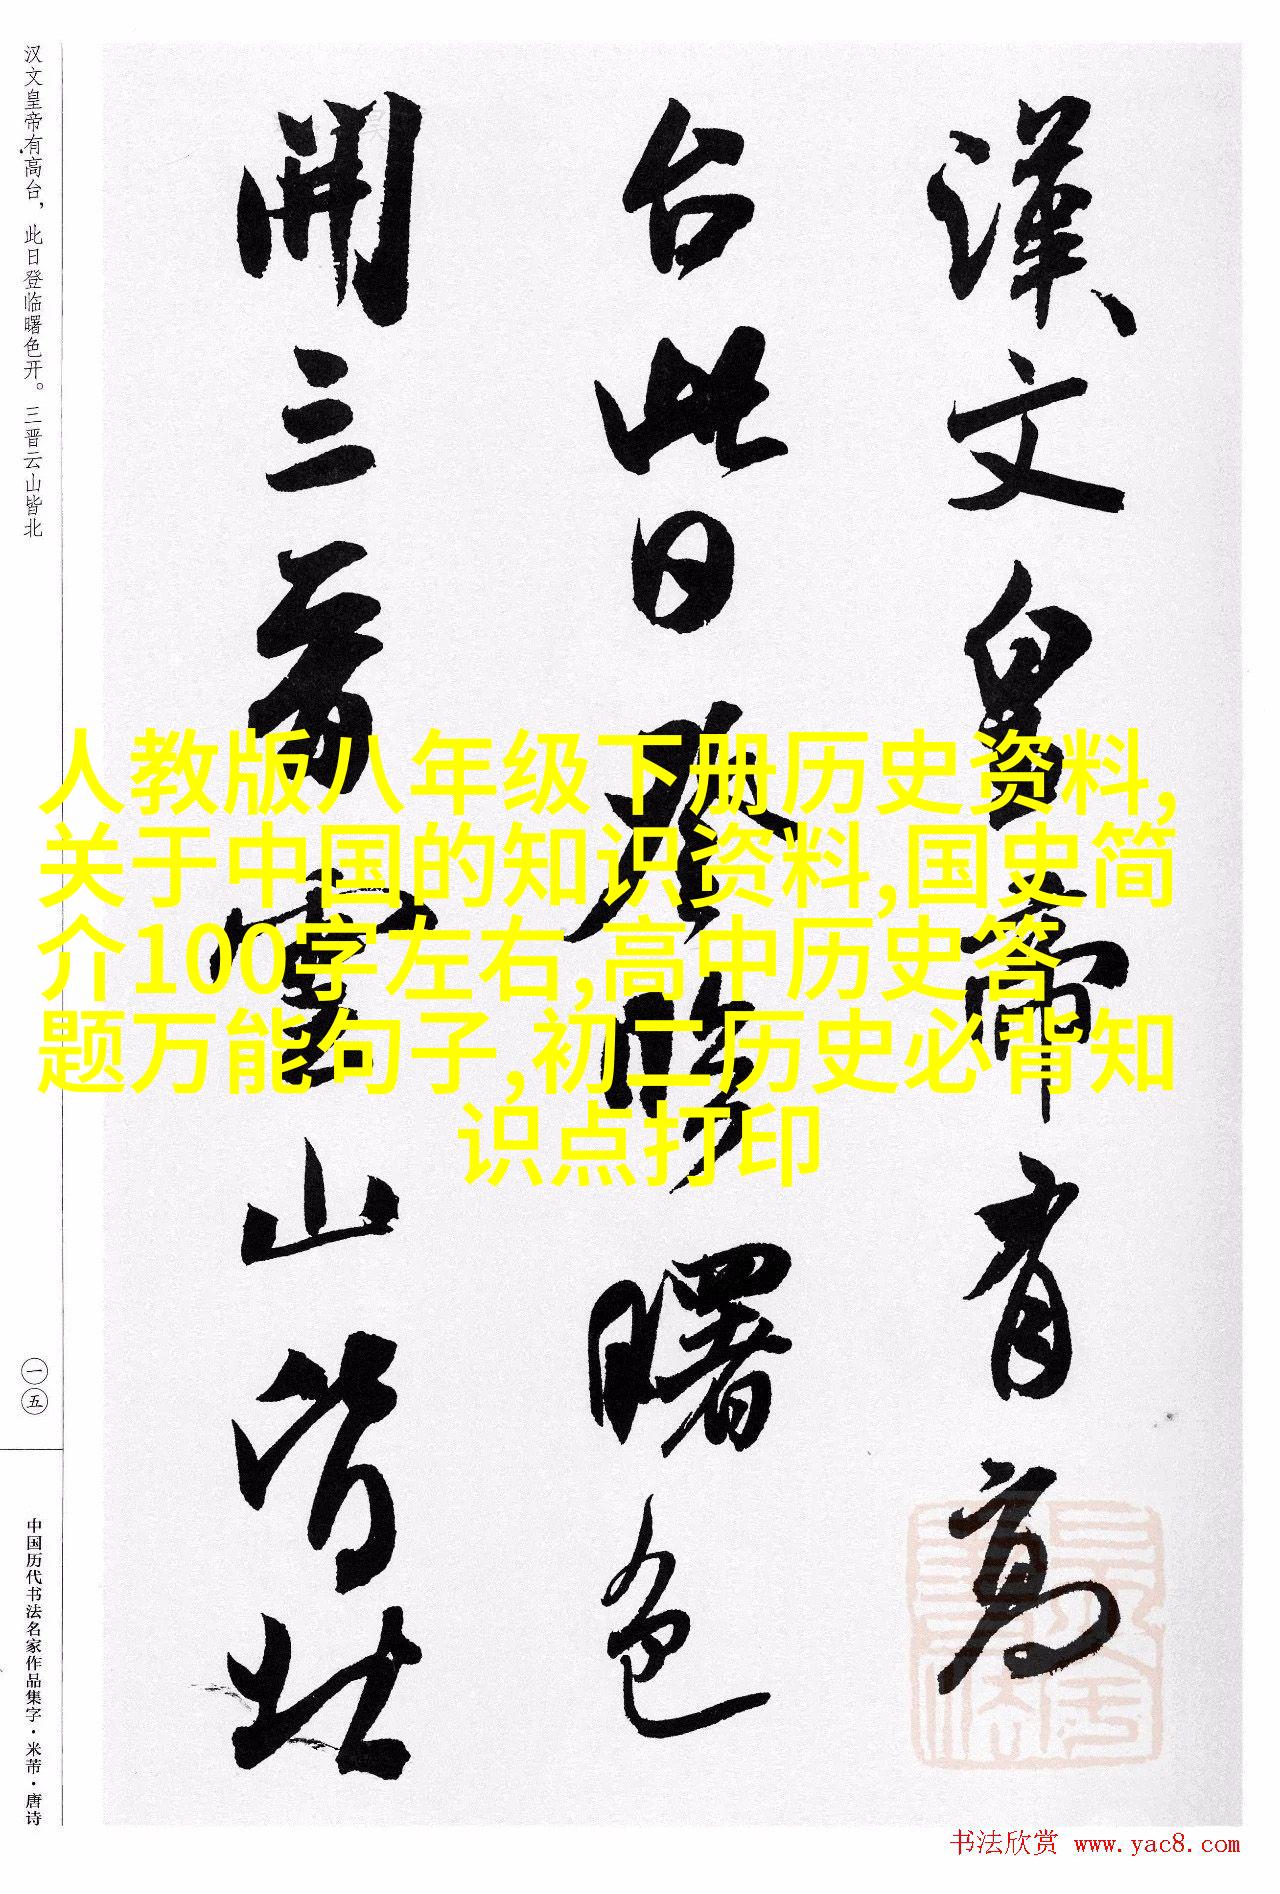 漢文皇帝有高
台此日登臨曙色
開三晉雲山皆北
汉文皇帝有高台，此日登临曙色开。三晋云山皆北
一五
中国历代书法名家作品集字·米芾·唐诗
人教版八年级下册历史资料,
关于中国的知识资料,国史简
介100字左右,高中历史答
题万能句子,初二历史必背知
识点打印
书法欣赏 www.yac8.com